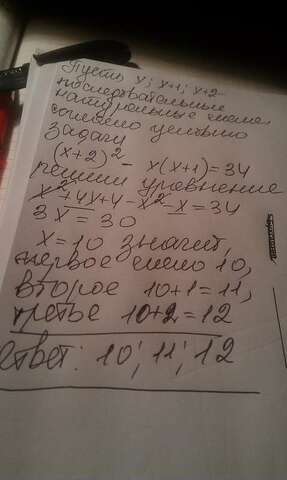 Пусть x; x+1; x+2
последовательные
натуральные числа.
согласно условию
задачи
(x+2)² - x(x+1)=34
решим уравнение
x²+4x+4-x²-x=34
3x=30
x=10 значит,
первое число 10,
второе 10+1=11,
третье 10+2=12
ответ: 10; 11; 12